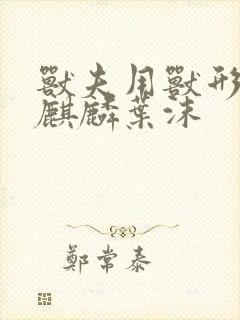 獸夫用獸形
麒麟葉沫
鄭常泰